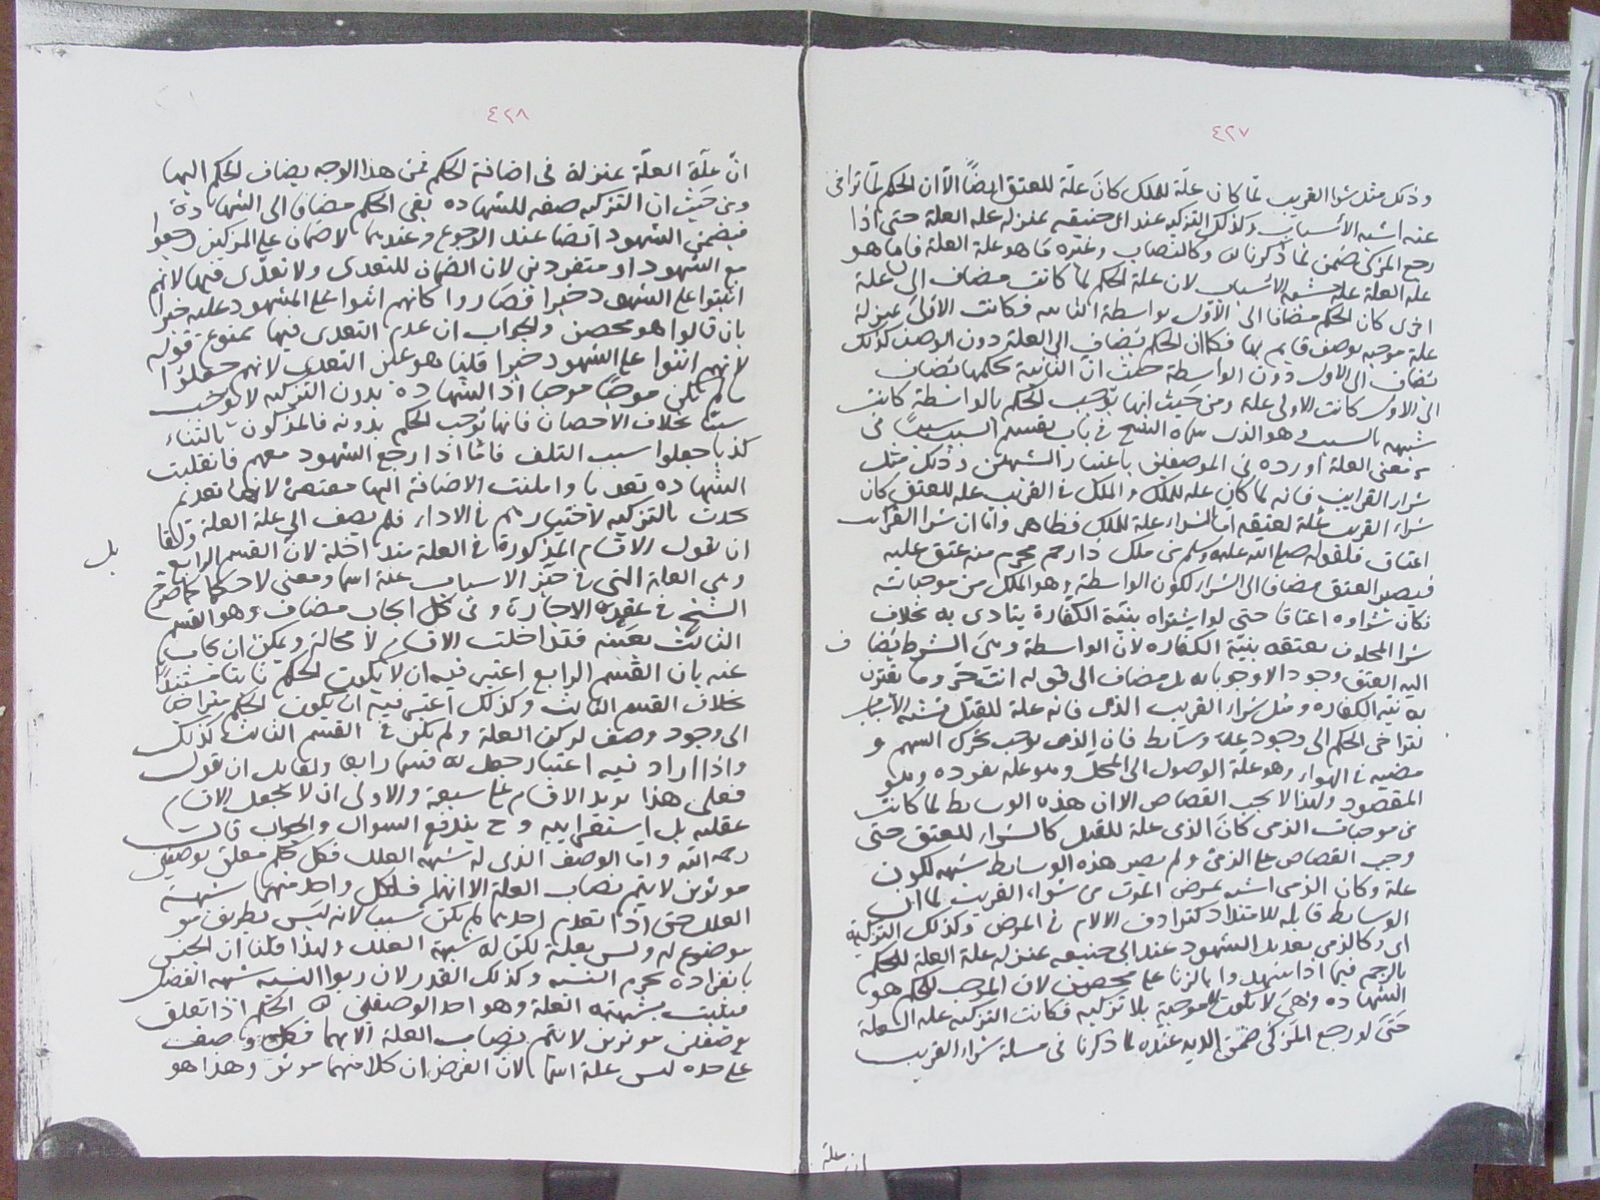 ٤٢٧
وذلك مثل شرا القريب لما كان علة للملك كان علة للعتق ايضًا الا ان الحكم لما تراخى
عنه اشبه الاسباب وكذلك التزكيه عند ابى حنيفه بمنزله علة العلة حتى اذا
رجع المزكى ضمن لما ذكرنا وكالنصاب وغيره مما هو علة العلة فان ما هو
علة العلة علة تشبه الاسباب لان علة الحكم لما كانت مضاف الى علة
اخرى كان الحكم مضافا الى الاول بواسطة الثانيه فكانت الاولى بمنزلة
علة موجبه بوصف قايم بها فكما ان الحكم يضاف الى العلة دون الوصف كذلك
يضاف الى الاول دون الواسطة فمن حيث ان الثانية بحكمها تضاف
الى الاولى كانت الاولى علة ومن حيث انها توجب الحكم بالواسطة كانت
شبيهه بالسبب وهو الذى سماه الشيخ فى باب تقسيم السبب سببا فى
معنى العلة اورده فى الموضعين باعتبار الشبهين وذلك مثل
شرا القريب فانه لما كان علة للملك والملك فى القريب علة للعتق كان
شراء القريب علة لعتقه اما الشراء علة للملك فظاهر واما ان شرا القريب
اعتاق فلقوله صلى الله عليه وسلم من ملك ذا رحم محرم منه عتق عليه
فيصير العتق مضافا الى الشراء لكون الواسطة وهو الملك من موجباته
فكان شراوه اعتاقا حتى لو اشتراه بنية الكفارة يتادى به بخلاف
شرا المحلوف بعتقه بنية الكفاره لان الواسطة وهى الشرط يضاف
اليه العتق وجودا لا وجوبا به بل مضاف الى قوله انت حر وما يقترن
به نية الكفاره ومثل شراء القريب الرمى فانه علة للقتل تشبه الاسباب
لتراخى الحكم الى وجود علة وسايط فان الرمى يوجب تحرك السهم و
مضيه فى الهواء وهو علة الوصول الى المحل وهو علة نفوذه وهو
المقصود ولهذا لا يجب القصاص الا ان هذه الوسايط لما كانت
من موجبات الرمى كان الرمى علة للقتل كالشراء للعتق حتى
وجب القصاص على الرامى ولم يصير هذه الوسايط شبهه لكون
علة وكان الرمى اشبه بمرض الموت من شراء القريب لما ان
الوسايط قابله للامتداد كترادف الالام فى المرض وكذلك التزكيه
اى وكالرمى تعديل الشهود عند ابى حنيفه بمنزله علة العلة للحكم
بالرجم فيما اذا شهدوا بالزنا على محصن لان الموجب للحكم هو
الشهاده وهى لا تكون موجبة بلا تزكيه فكانت التزكيه علة العلة
حتى لو رجع المزكى ضمن الديه عنده لما ذكرنا فى مسلة شراء القريب
ان علة
٤٢٨
ان علّة العلّة بمنزلة فى اضافة الحكم فمن هذا الوجه يضاف الحكم اليها
ومن حيث ان التزكيه صفه للشهاده بقى الحكم مضافا الى الشهادة
فيضمن الشهود ايضا عند الرجوع وعندهما لا ضمان على المزكين رجعوا
مع الشهود او متفردين لان الضمان للتعدى ولا تعدى فيها لانهم
اثنوا على الشهود خيرا فصاروا كانهم اثنوا على المشهود عليه خيرا
بان قالوا هو محصن والجواب ان عدم التعدى فيها ممنوع قوله
لانهم اثنوا على الشهود خيرا قلنا هو عين التعدى لانهم جعلوا
ما لم يكن موجبا موجبا اذ الشهاده بدون التزكيه لا توجب
شيئا بخلاف الاحصان فانها توجب الحكم بدونه فالمزكون بالثناء
كذبا جعلوا سبب التلف فاما اذا رجع الشهود معهم فانقلبت
الشهاده تعديا وامكنت الاضافة اليها مقتصرة لانها تعدم
بحدث بالتزكيه لاختيارهم فى الاداء فلم يضف الى علة العلة ولقائل
ان يقول الاقسام المذكورة فى العلة متداخلة لان القسم الرابع بل
وهى العلة التى فى حيّز الاسباب علة اسما ومعنى لا حكما كما صرح
الشيخ فى عقد الاجارة وفى كل ايجاب مضاف وهو القسم
الثالث بعينه فتداخلت الاقسام لا محالة ويمكن ان يجاب
عنه بان القسم الرابع اعتبر فيه ان لا يكون الحكم ثابتا مستندا
بخلاف القسم الثالث وكذلك اعتبر فيه ان يكون الحكم متراخيا
الى وجود وصف لركن العلة ولم يكن فى القسم الثالث كذلك
واذا اراد فيه اعتبار جعل له قسما رابعا ولقايل ان يقول
فعلى هذا يزيد الاقسام على سبعة والاولى ان لا يجعل الاقسام
عقليه بل استقراييه وح يندفع السوال والجواب قال
رحمه الله واما الوصف الذى له شبهه العلل فكل حكم معلق بوصفين
موثرين لا يتم نصاب العلة الا بهما فلكل واحد منهما شبهة
العلل حتى اذا تقدم احدهما لم يكن سببا لانه ليس بطريق هو
موضوع له وليس بعلة لكن له شبهة العلل ولهذا قلنا ان الجنس
بانفراده يحرم النسيه وكذلك القدر لان ربوا النسيه شبهه الفضل
فيثبت بشبهه العلة وهو احد الوصفين الحكم اذا تعلق
بوصفين موثرين لا يتم نصاب العلة الا بهما فكل وصف
على حده ليس علة اسما لان الفرض ان كلا منهما موثر وهذا هو